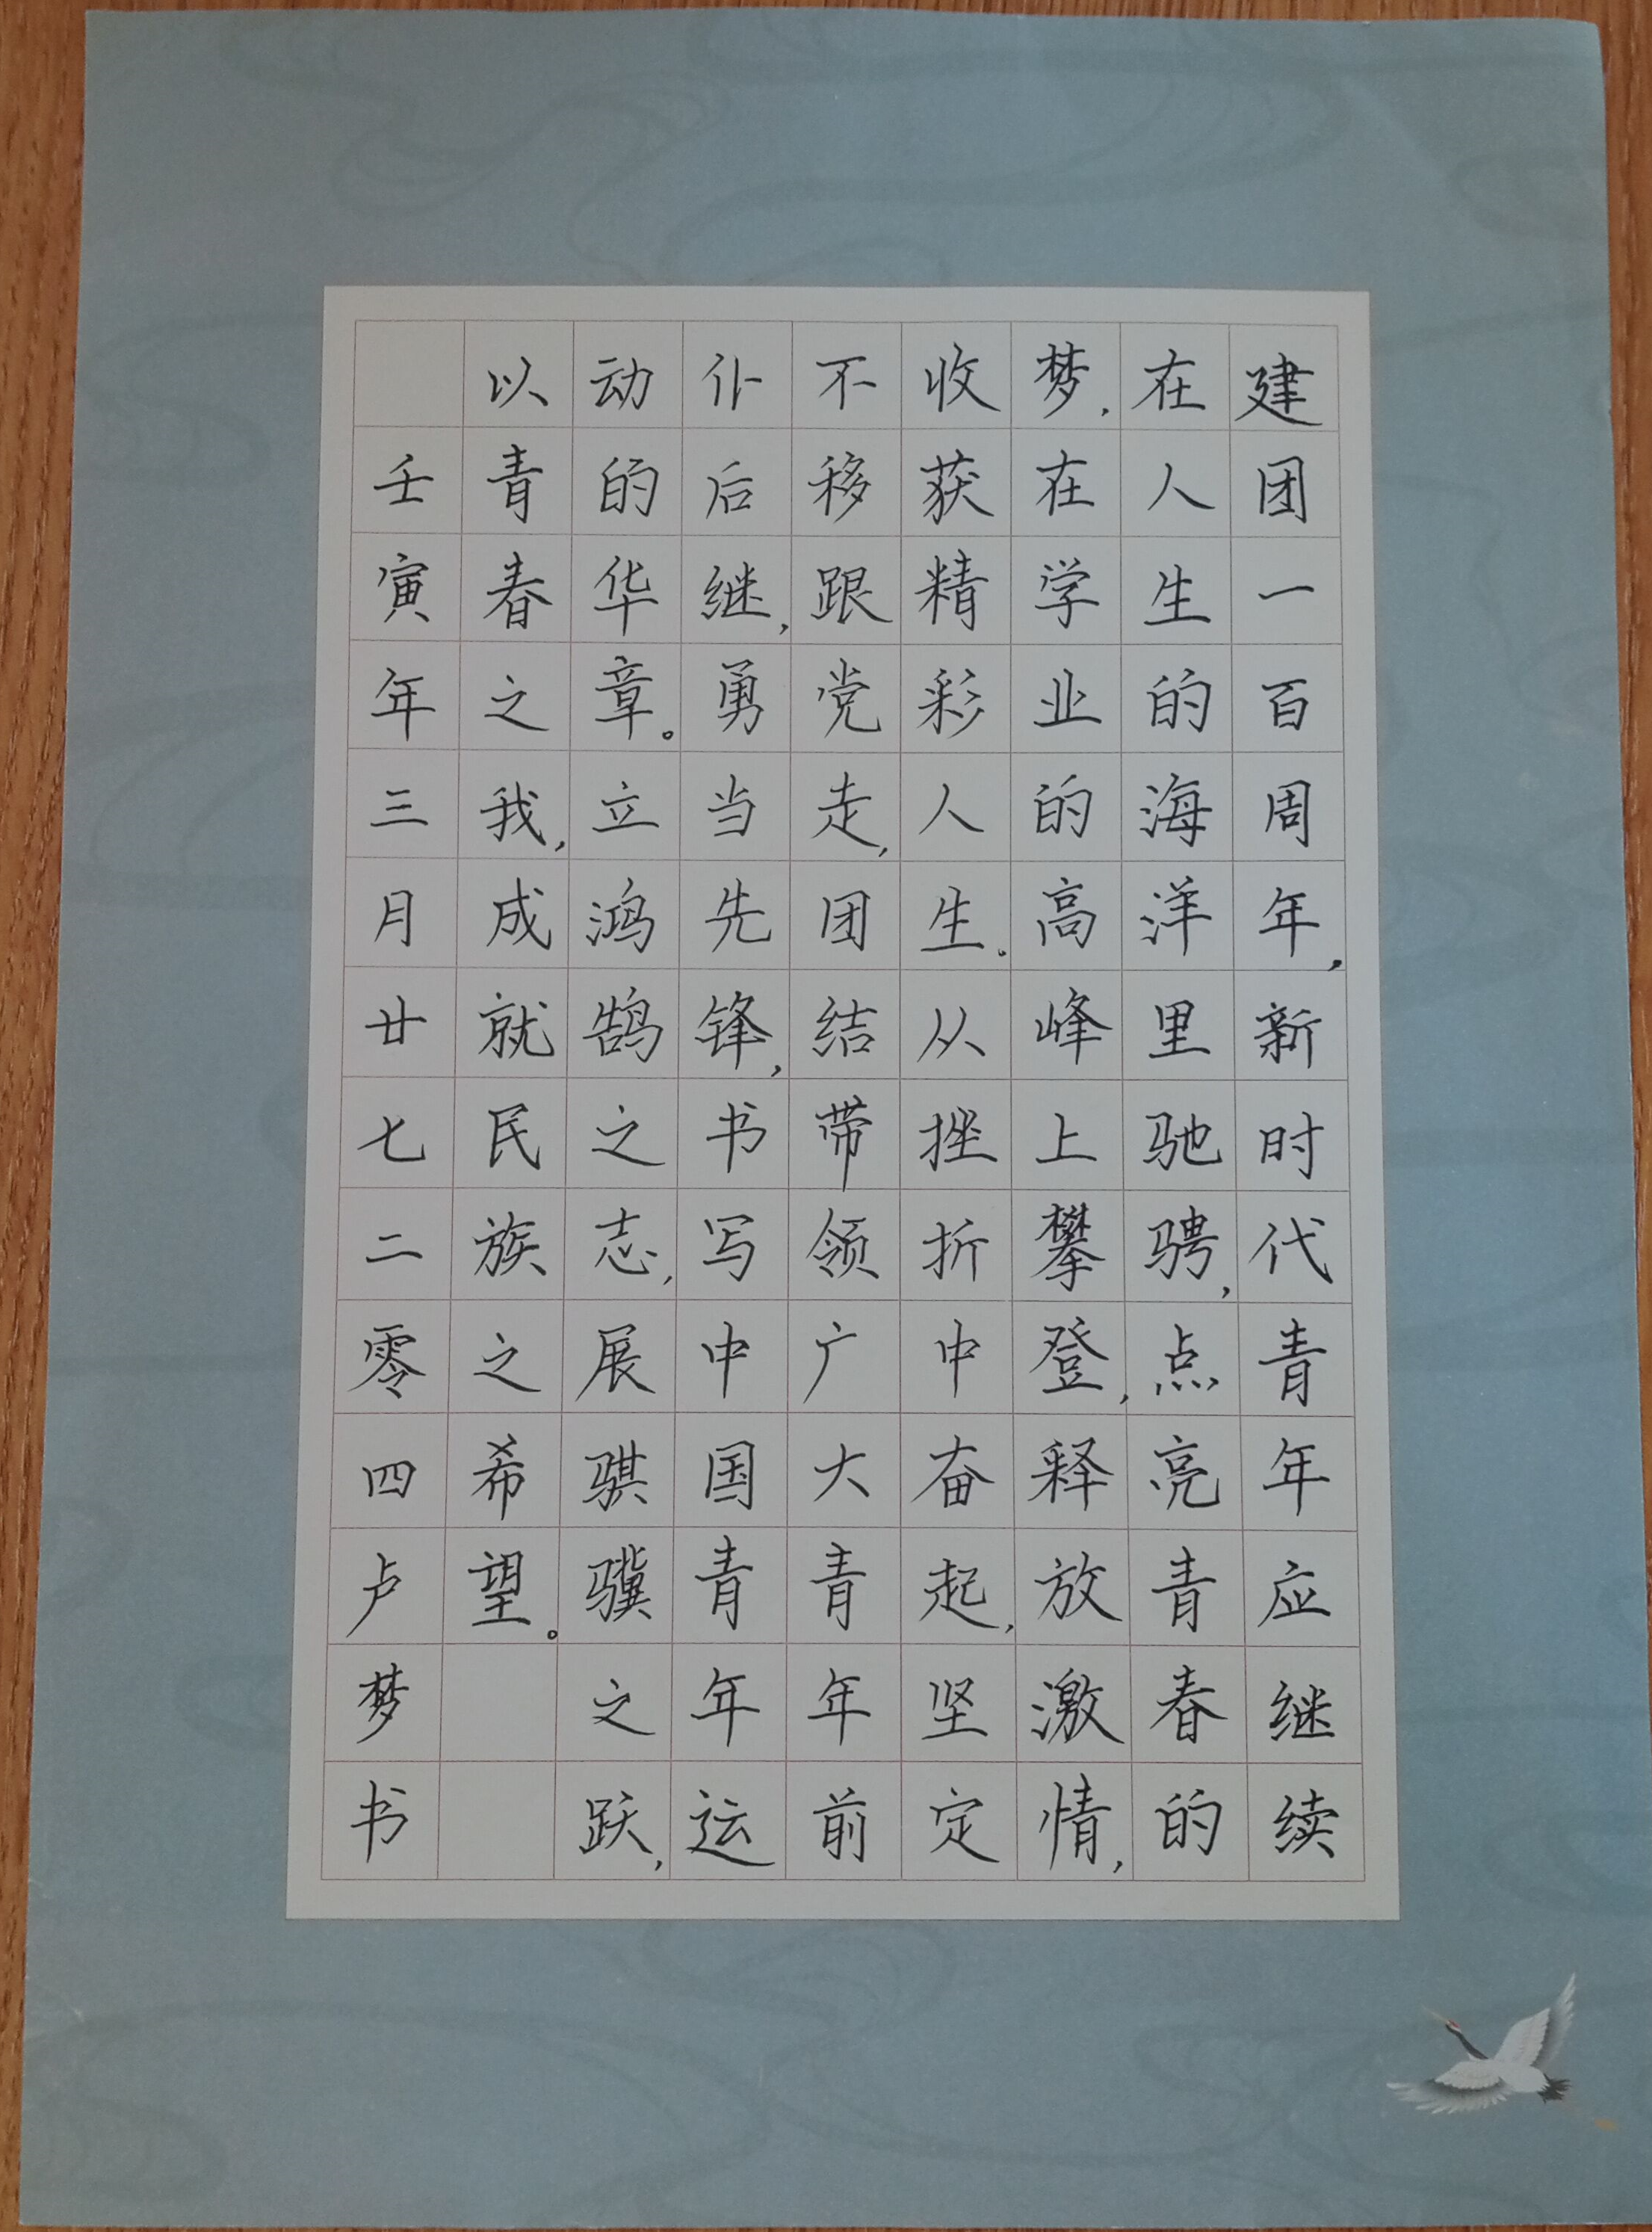 建团一百周年，新时代青年应继续
在人生的海洋里驰骋，点亮青春的
梦，在学业的高峰上攀登，释放激情，
收获精彩人生。从挫折中奋起，坚定
不移跟党走，团结带领广大青年前
仆后继，勇当先锋，书写中国青年运
动的华章。立鸿鹄之志，展骐骥之跃，
以青春之我，成就民族之希望。
壬寅年三月廿七二零四卢梦书